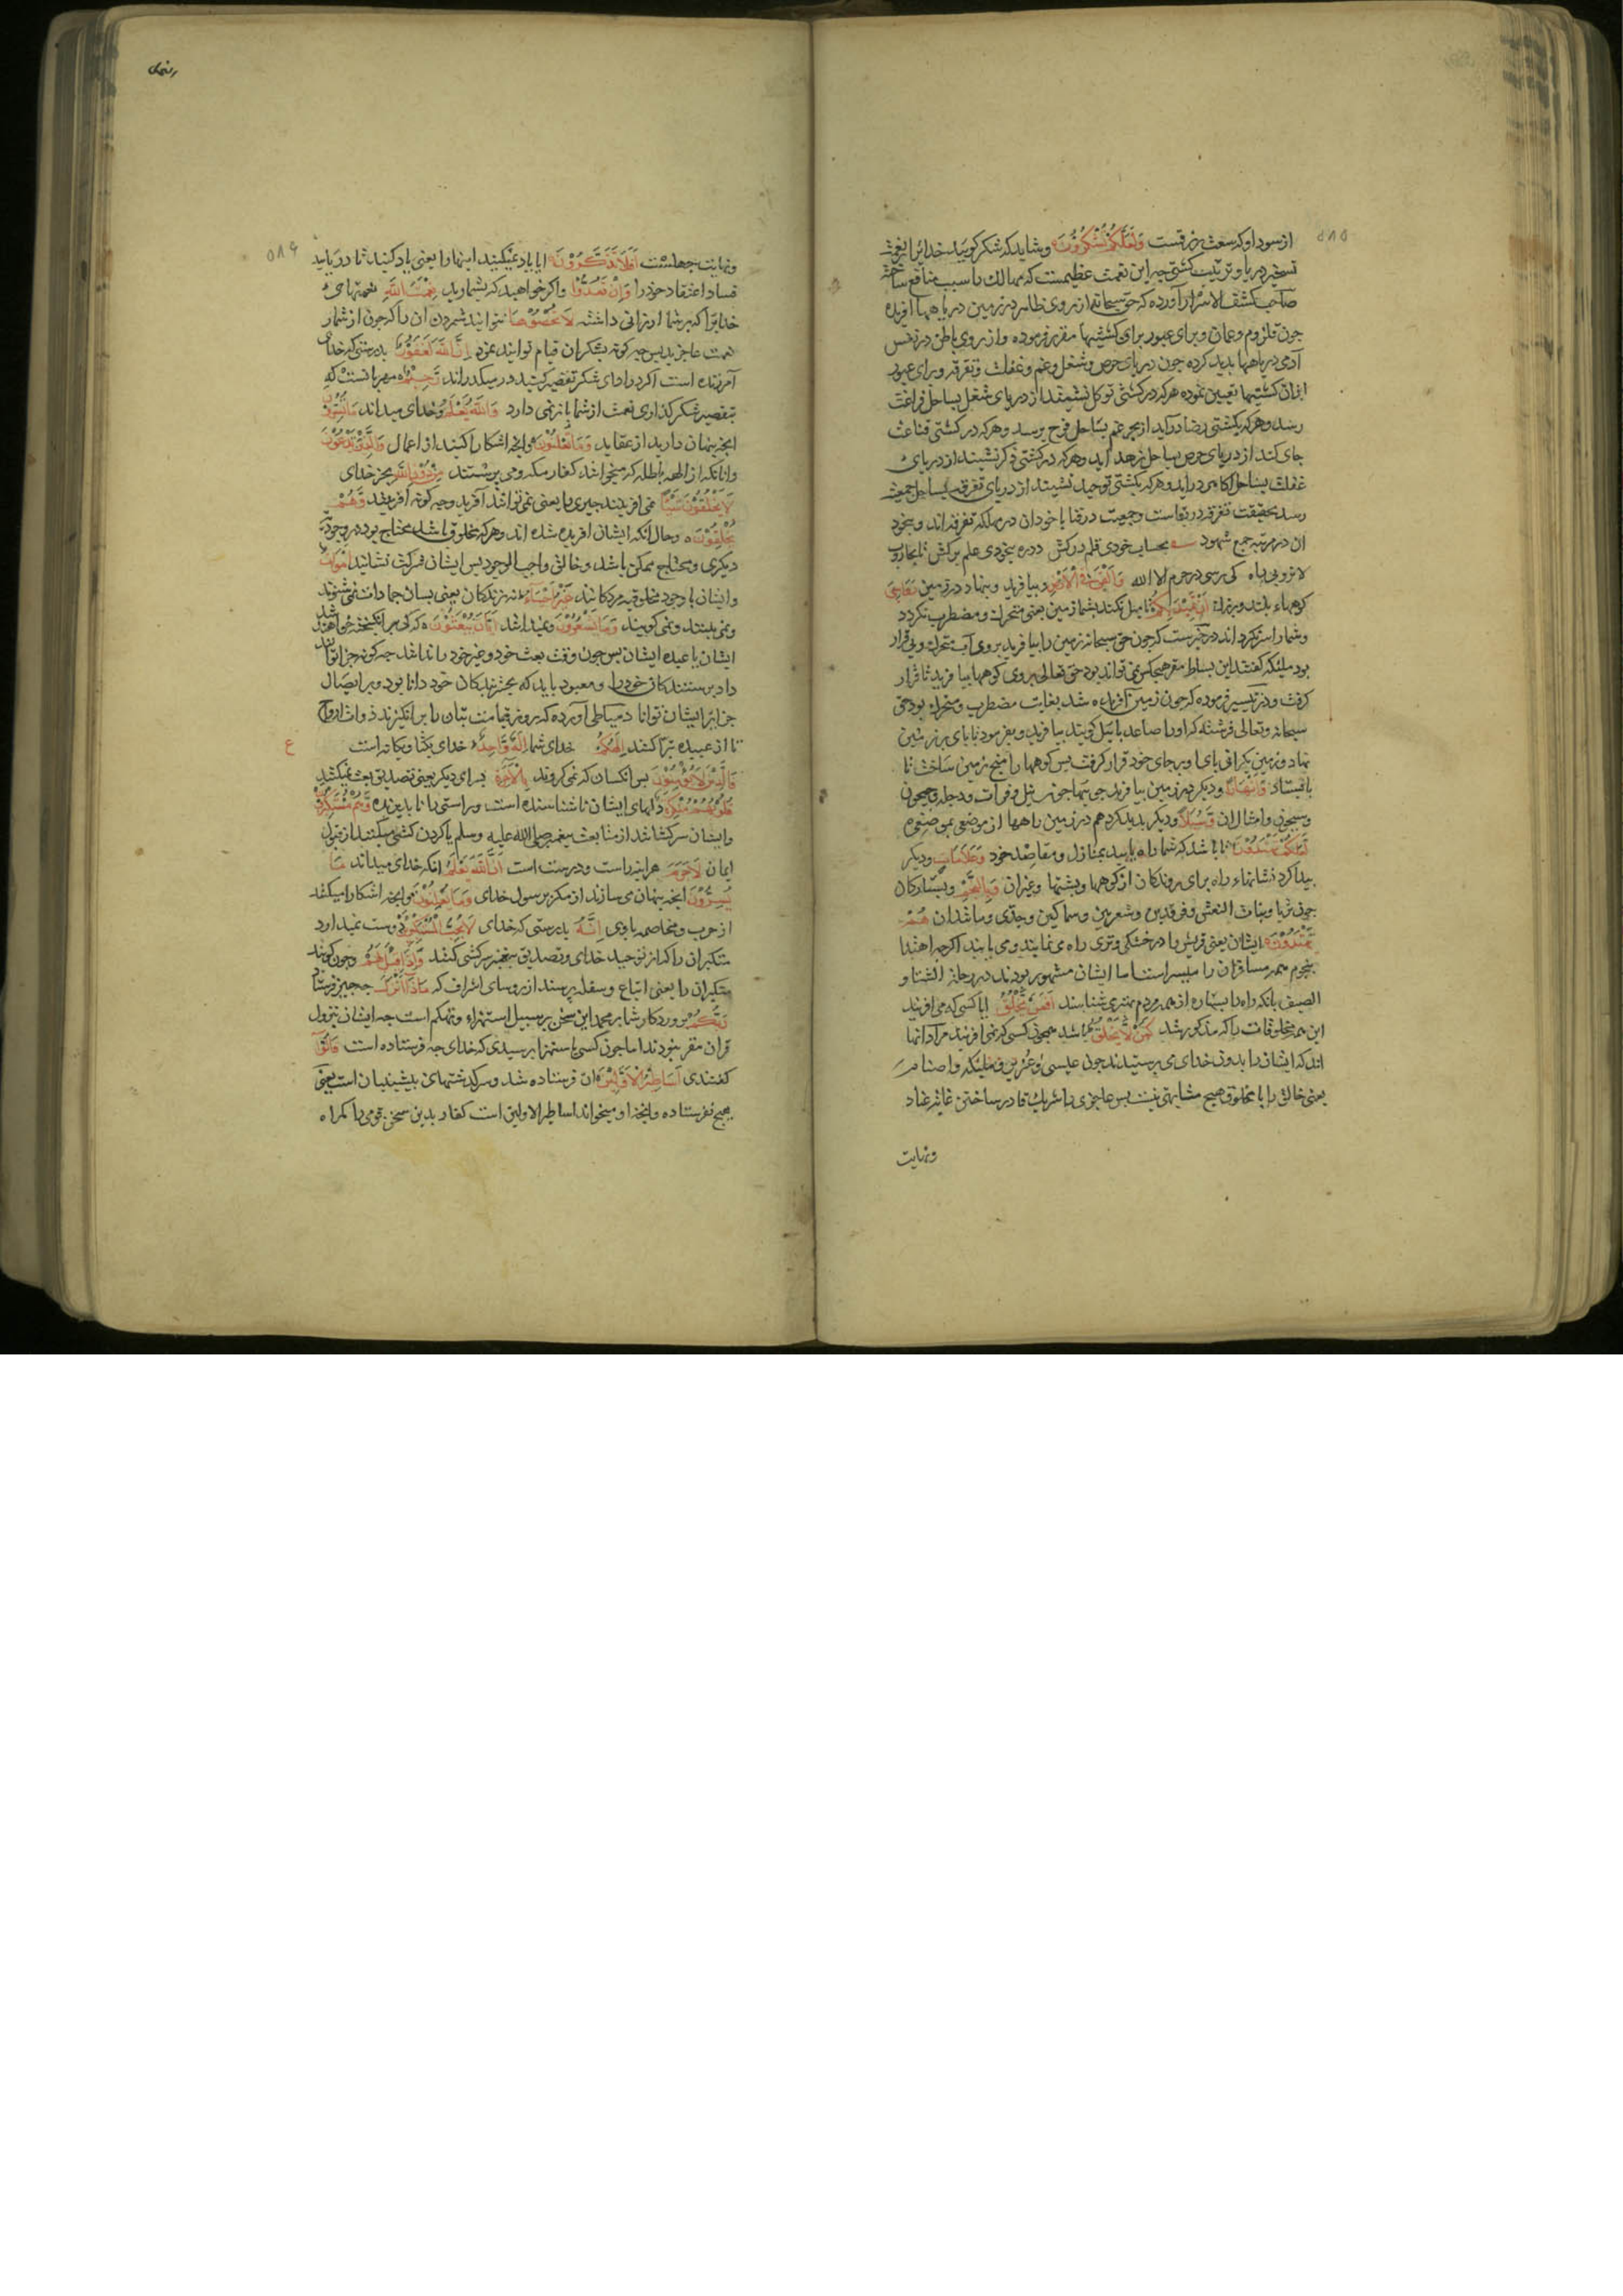 ۵۸۵
از سود او که سعت رزقست وَلَعَلَّكُمْ تَشْكُرُونَ و شاید که شکر گویید خدایرا بنعمت
تسخیر دریا و ترتیب کشتی چه این نعمت عظیمست که مهالک را سبب منافع ساخت
صاحب کشف الاسرار آورده که حق سبحانه از روی ظاهر در زمین دریاهها آفریده
چون قلزوم و عمان و برای عبور برای کشتیها مقرر فرموده و از روی باطن در نفس
آدمی دریاهها پدید کرده چون دریای حرص و شغل و غم و غفلت و تفرقه و برای عبور
ازان کشتیها تعیین نموده هرکه در کشتی توکل نشیند از دریای شغل بساحل فراغت
رسد و هرکه بکشتی رضا درآید از بحر غم بساحل فرح برسد و هرکه در کشتی قناعت
جای کند از دریای حرص بساحل زهد آید و هرکه در کشتی ذکر نشیند از دریای
غفلت بساحل آگاهی درآید و هرکه بکشتی توحید نشیند از دریای تفرقه بساحل جمعیت
رسد بحقیقت تفرقه در بقاست و جمعیت در فنا با خودان در مهلکه تفرقه اند و بیخود
ان در مرتبه جمع شهود بحساب خودی قلم درکش در ره بیخودی علم برکش تا بجاروب
لا نروبی راه کی رسی در حرم الا الله وَأَلْقَى فِي الْأَرْضِ و بیافرید و بنهاد در زمین رَوَاسِيَ
کوههاء بلند و بزرگ أَنْ تَمِيدَ بِكُمْ تا میل نکند بشما زمین یعنی متحرک و مضطرب نگردد
و شما را سرنگرداند در خبرست که چون حق سبحانه زمین را بیافرید بر روی آب متحرک و بی قرار
بود ملئکه گفتند این بساط مقر هیچکس نمی تواند بود حق تعالی بر وی کوهها بیافرید تا قرار
گرفت و در تیسیر فرموده که چون زمین آفریده شد بغایت مضطرب و متحرک بود حق
سبحانه و تعالی فرشته که او را صاعد یائیل گویند بیافرید و بفرمود تا پای بر زمین
نهاد و زمین بگرانی پای او بر جای خود قرار گرفت پس کوهها را میخ زمین ساخت تا
باقیستاد وَأَنْهَارًا و دیگر در زمین بیافرید جویها چون نیل و فرات و دجله و جیحون
و سیحون و امثال ان وَسُبُلًا و دیگر پدید کرد هم در زمین راهها از موضعی بموضعی
لَعَلَّكُمْ تَهْتَدُونَ تا باشد که شما راه یابید بمنازل و مقاصد خود وَعَلَامَاتٍ و دیگر
پیدا کرد نشانهاء راه برای روندکان از کوهها و پشتها و غیر ان وَبِالنَّجْمِ و بستارکان
چون ثریا و بنات النعش و فرقدین و شعریین و سماکین و جدی و مانند ان هُمْ
يَهْتَدُونَ ایشان یعنی قریش را در خشکی و تری راه می نمایند و می یابند اگرچه اهتدا
بنجوم همه مسافران را میسر است اما ایشان مشهور بودند در رحلة الشتا و
الصیف بانکه راه را بستاره از همه مردم بهتر می شناسند أَفَمَنْ يَخْلُقُ ایا کسی که می افریند
این همه مخلوقات را که مذکور شد كَمَنْ لَا يَخْلُقُ باشد همچون کسی که نمی افریند مراد انها
اند که ایشان را بدون خدای می پرستیدند چون عیسی و عزیر و ملئکه و اصنام
یعنی خالق را با مخلوق هیچ مشابهتی نیست پس عاجزی را شریک قادر ساختن غایت عناد
ونهایت
۵۸۶
ونهایت جهلست أَفَلَا تَذَكَّرُونَ ایا یاد نمیکنید اینها را یعنی یاد کنید تا دریابید
فساد اعتقاد خود را وَإِنْ تَعُدُّوا و اگر خواهید که بشمارید نِعْمَتَ اللَّهِ نعمتهای
خدایرا که بر شما ارزانی داشته لَا تُحْصُوهَا نتوانید شمردن ان را که چون از شمار
نعمت عاجزید پس چگونه بشکران قیام توانید نمود إِنَّ اللَّهَ لَغَفُورٌ بدرستی که خدای
آمرزنده است اگر در ادای شکر تقصیر کنید درمیگذراند رَحِيمٌ مهربانست که
بتقصیر شکر گذاری نعمت از شما باز نمی دارد وَاللَّهُ يَعْلَمُ و خدای میداند مَا تُسِرُّونَ
انچه پنهان دارید از عقاید وَمَا تُعْلِنُونَ و انچه اشکارا کنید از اعمال وَالَّذِينَ يَدْعُونَ
و انانکه از الهه باطله که میخوانند کفار مکه و می پرستند مِنْ دُونِ اللَّهِ بجز خدای
لَا يَخْلُقُونَ شَيْئًا نمی افریدند چیزی را یعنی نمی توانند آفرید و چه گونه آفرینند وَهُمْ
يُخْلَقُونَ و حال انکه ایشان افریده شده اند و هرکه مخلوق باشد محتاج بود در وجود
دیگری و محتاج ممکن باشد و خالق واجب الوجود پس ایشان شرکت نشایند أَمْوَاتٌ
و ایشان با وجود مخلوقیه مردکانند غَيْرُ أَحْيَاءٍ نه زندکان یعنی بسان جمادات نمی شنوند
و نمی بینند و نمی گویند وَمَا يَشْعُرُونَ و نمیدانند أَيَّانَ يُبْعَثُونَ که کی برانگیخته خواهند شد
ایشان یا عبده ایشان پس چون وقت بعث خود و غیر خود را ندانند چه گونه جزا توانند
داد پرستندکان خود را و معبود باید که بجزء بندکان خود دانا بود و بر ایصال
جزا بر ایشان توانا دمیاطی آورده که روز قیامت بتان را برانگیزند ذوات ارواح
تا از عبیده تبرا کنند إِلَهُكُمْ خدای شما إِلَهٌ وَاحِدٌ خدای یکتا و یکانه است
ع
فَالَّذِينَ لَا يُؤْمِنُونَ پس انکسان که نمی گروند بِالْآخِرَةِ بسرای دیگر یعنی تصدیق بعث نمیکنند
قُلُوبُهُمْ مُنْكِرَةٌ دلهای ایشان ناشناسنده است و راستی را ناپذیرنده وَهُمْ مُسْتَكْبِرُونَ
و ایشان سرکشانند از متابعت پیغمبر صلی الله علیه وسلم یا گردن کشی میکنند از قبول
ایمان لَا جَرَمَ هراینه راست و درست است أَنَّ اللَّهَ يَعْلَمُ انکه خدای میداند مَا
يُسِرُّونَ انچه پنهان می سازند از مکر بر رسول خدای وَمَا يُعْلِنُونَ و انچه اشکارا میکنند
از حرب و مخاصمه با وی إِنَّهُ بدرستی که خدای لَا يُحِبُّ الْمُسْتَكْبِرِينَ دوست نمیدارد
متکبران را که از توحید خدای و تصدیق پیغمبر سرکشی کنند وَإِذَا قِيلَ لَهُمْ و چون گویند
متکبران را یعنی اتباع و سفله پرسند از روسای اشراف که مَاذَا أَنْزَلَ چه چیز فرستاد
رَبُّكُمْ پروردکار شما بر محمد این سخن بر سبیل استهزاء و تهکم است چه ایشان بنزول
قران مقر نبودند اما چون کسی باستهزا پرسیدی که خدای چه فرستاده است قَالُوا
گفتندی أَسَاطِيرُ الْأَوَّلِينَ ان فرستاده شد و سرگذشتهای پیشینیان است یعنی
هیچ نفرستاده و انچه او میخواند اساطیر الاولین است کفار بدین سخن قومی را گمراه